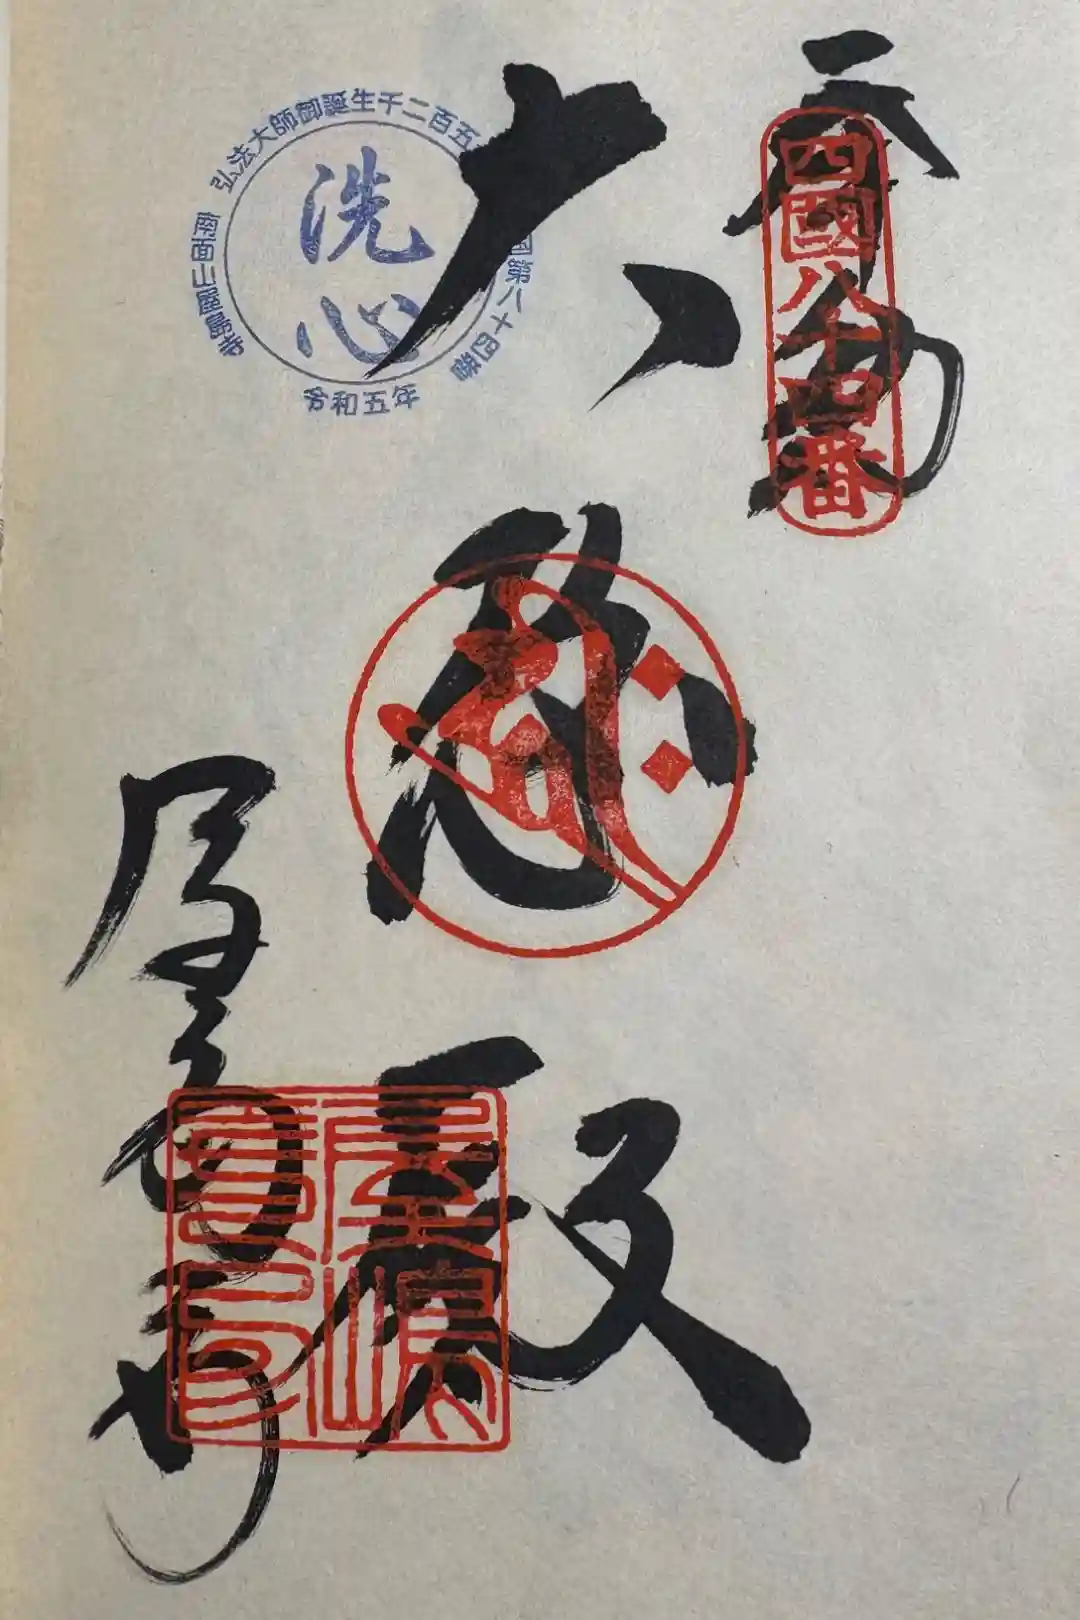 奉納
四國八十四番
大
悲
殿
屋島寺
弘法大師御誕生千二百五
第八十四番
南面山屋島寺
洗心
令和五年